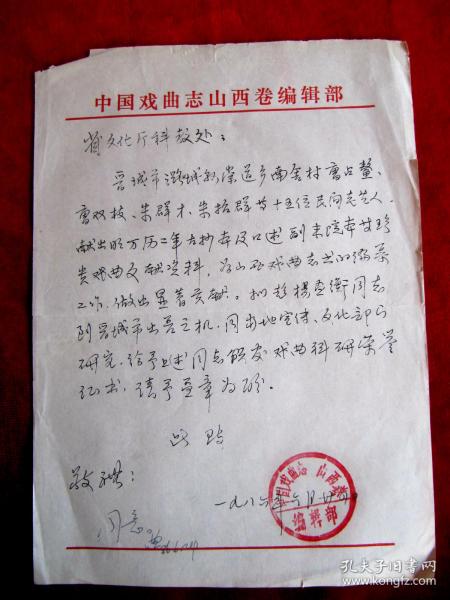 中国戏曲志山西卷编辑部
省文化厅科教处：
晋城市潞城县崇道乡南舍村曹占鳌、
曹双枝、朱群才、朱招群等十五位民间老艺人，
献出明万历二年古抄本及口述剧本境本等珍
贵戏曲文献资料，为山西戏曲志书的编纂
工作，做出显著贡献。拟趁杨孟衡同志
到晋城市出差之机，同当地宣传、文化部门
研究，给予上述同志颁发戏曲科研荣誉
证书，请予盖章为盼。
此致
敬礼：
一九八六年六月廿四日
中国戏曲志 山西卷
编辑部
同意
孔夫子旧书网